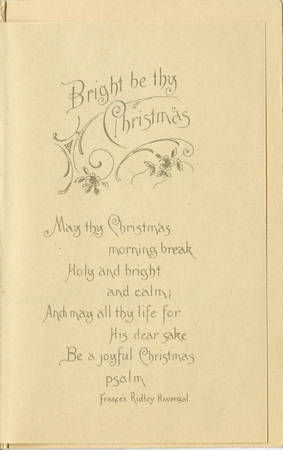 Bright be thy
Christmas
May thy Christmas
morning break
Holy and bright
and calm;
And may all thy life for
His dear sake
Be a joyful Christmas
psalm.
Frances Ridley Havergal.